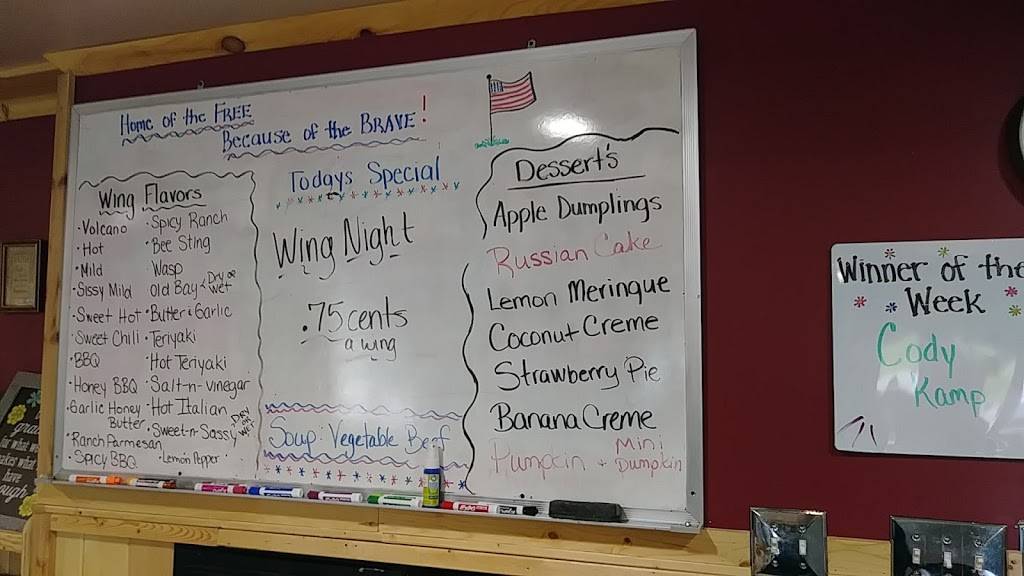 Home of the FREE
Because of the BRAVE!
Wing Flavors
· Volcano
· Hot
· Mild
· Sissy Mild
· Sweet Hot
· Sweet Chili
· BBQ
· Honey BBQ
· Garlic Honey
Butter
· Ranch Parmesan
· Spicy BBQ
· Spicy Ranch
· Bee Sting
Wasp
Old Bay < Dry or
Wet
· Butter & Garlic
· Teriyaki
· Hot Teriyaki
· Salt-n-vinegar
· Hot Italian
· Sweet-n-Sassy
DRY
WET
· Lemon Pepper
Todays Special
Wing Night
.75 cents
a wing
Soup: Vegetable Beef
Dessert's
Apple Dumplings
Russian Cake
Lemon Meringue
Coconut Creme
Strawberry Pie
Banana Creme
Pumpkin + Mini
Dumpkin
Winner of the
Week
Cody
Kamp